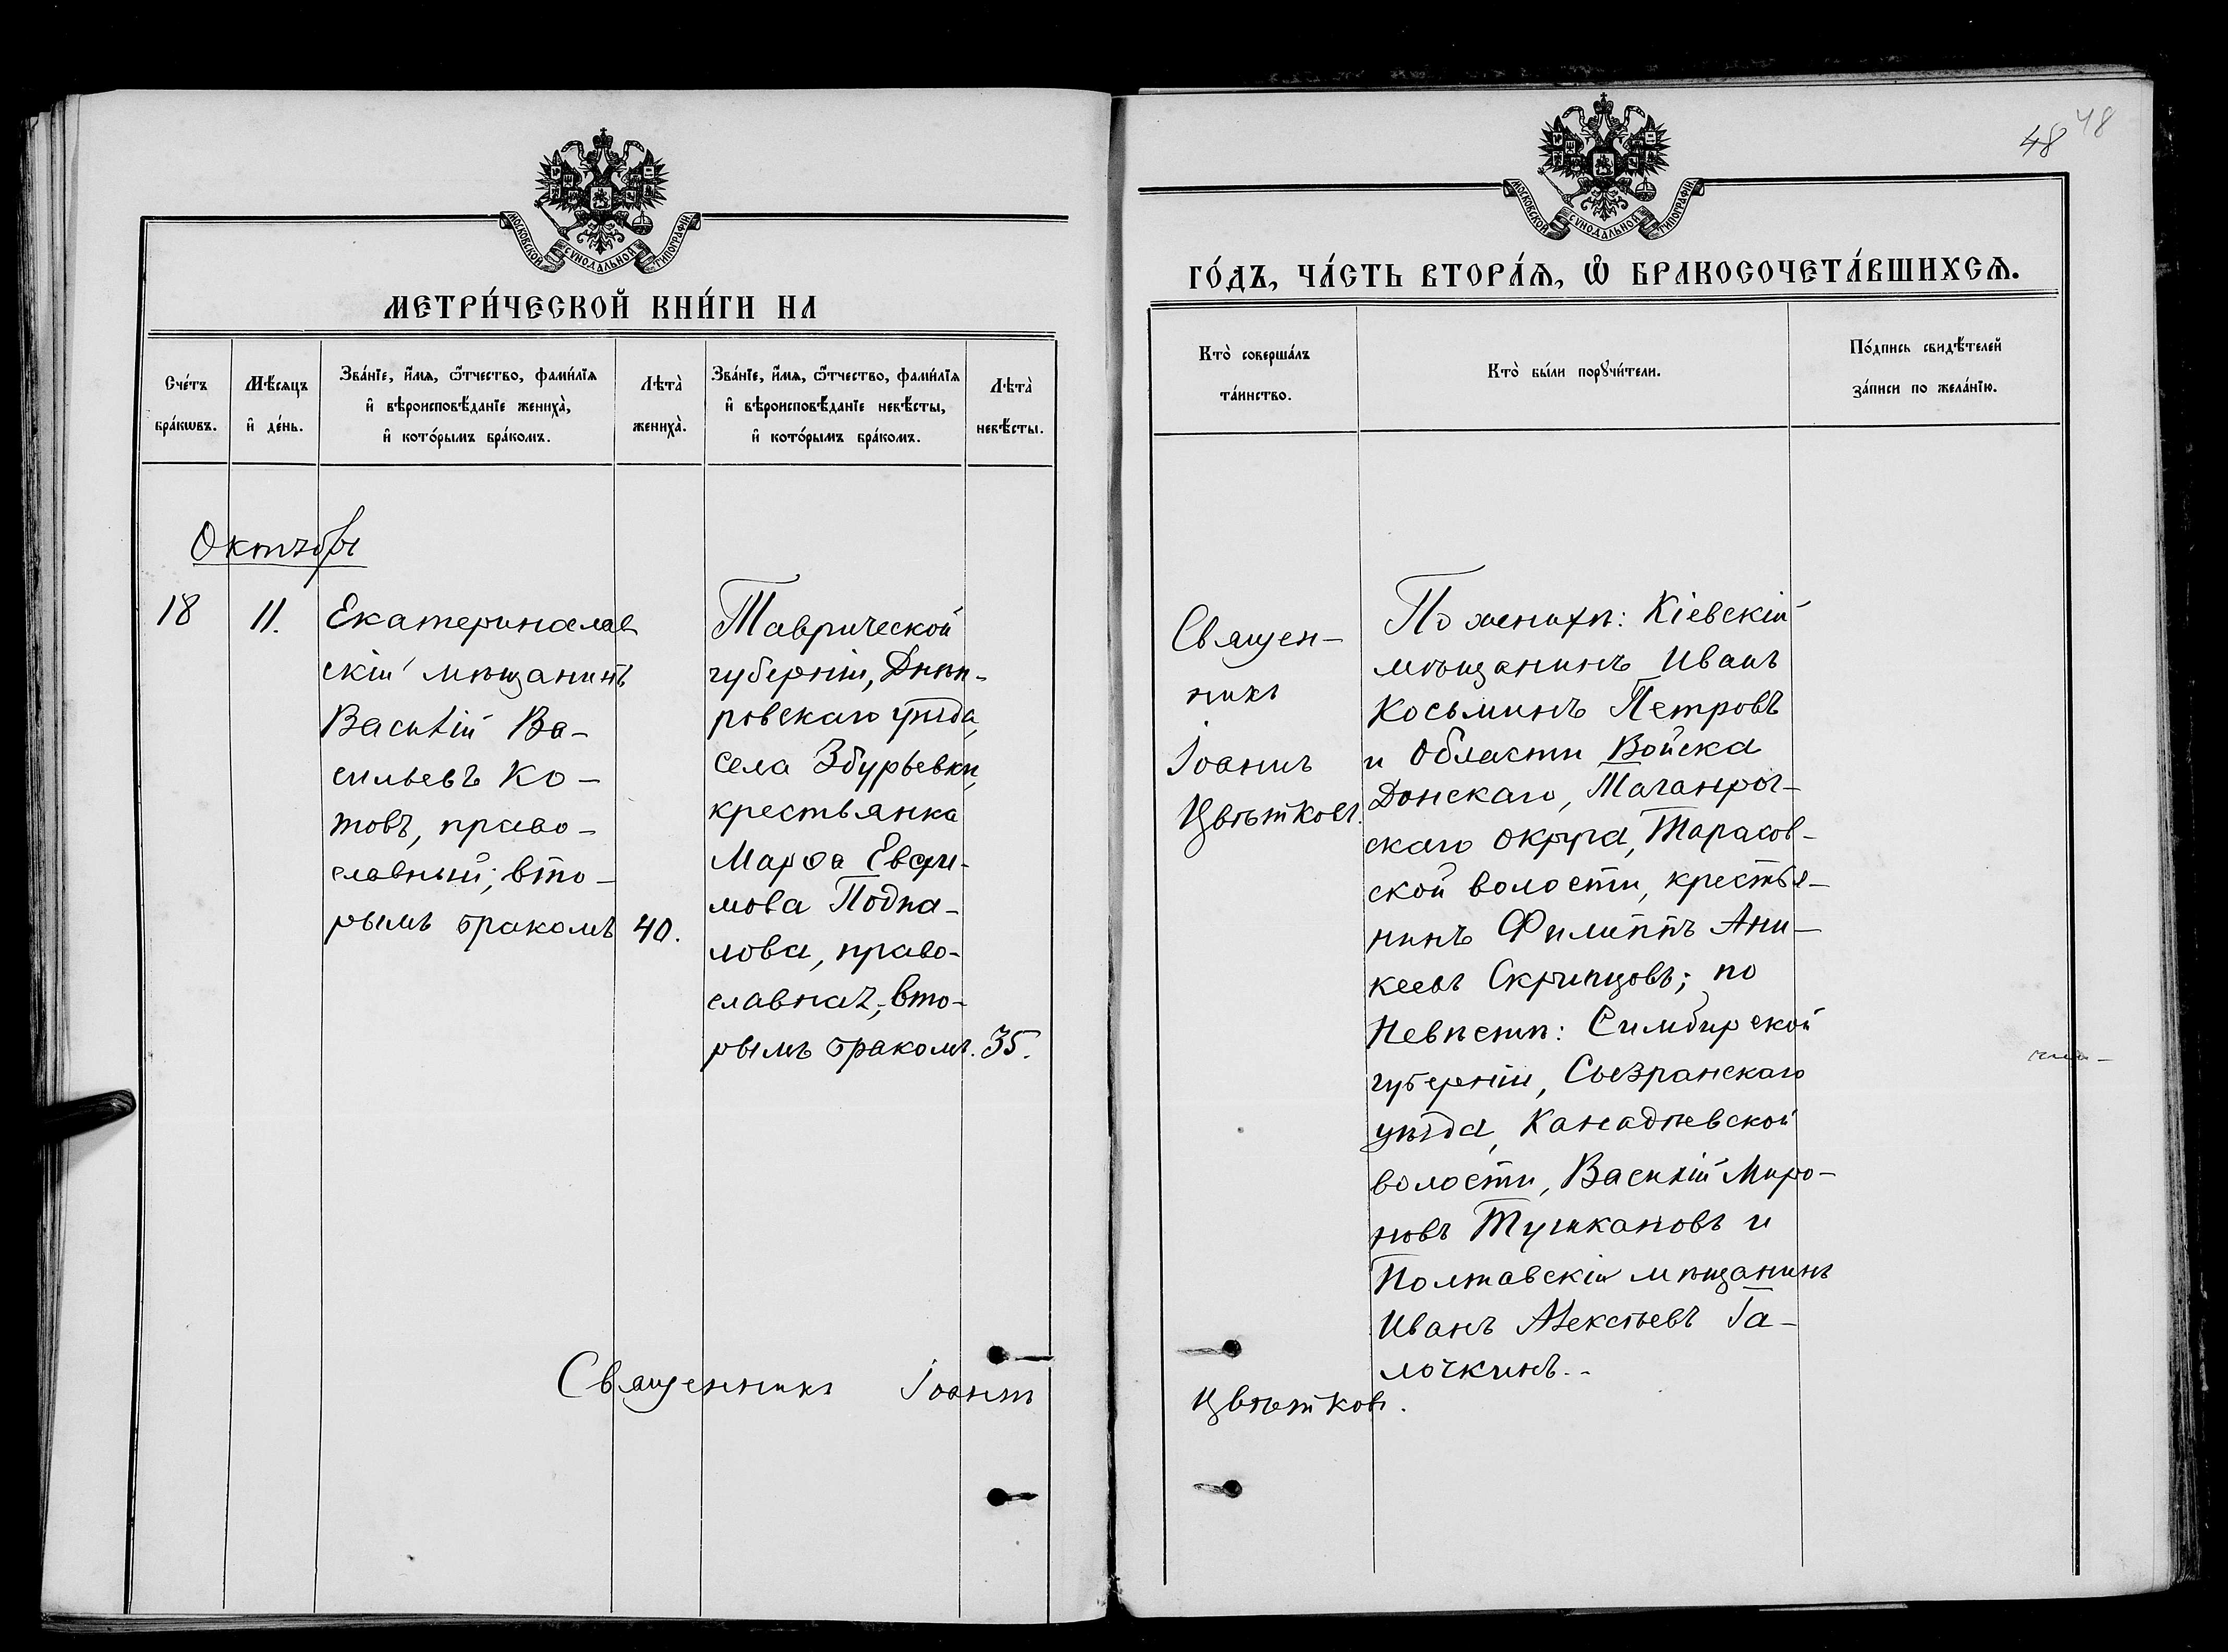 МОСКОВСКОЙ СѴНОДАЛЬНОЙ ТИПОГРАФІИ
МЕТРИ́ЧЕСКОЙ КНИ́ГИ НА
Сче́тъ бра́кѡвъ.
Мѣ́сяцъ и҆ де́нь.
Зва́нїе, и҆́мѧ, ѻ҆́тчество, фами́лїѧ
и҆ вѣроисповѣ́данїе жениха̀,
и҆ кото́рымъ бра́комъ.
Лѣта̀ жениха̀.
Зва́нїе, и҆́мѧ, ѻ҆́тчество, фами́лїѧ
и҆ вѣроисповѣ́данїе невѣ́сты,
и҆ кото́рымъ бра́комъ.
Лѣта̀ невѣ́сты.
Октябрь
18
11.
Екатеринослав
скій мѣщанинъ
Василій Ва-
сильевъ Ко-
товъ, право-
славный; вто-
рымъ бракомъ
40.
Таврической
губерніи, Днѣп-
ровскаго уѣзда,
села Збурьевки,
крестьянка
Марѳа Евфи-
мова Подпа-
лова, право-
славная; вто-
рымъ бракомъ.
35.
Священникъ Іоаннъ
48
48
МОСКОВСКОЙ СѴНОДАЛЬНОЙ ТИПОГРАФІИ
ГО́ДЪ, ЧА́СТЬ ВТОРА́Ѧ, Ѽ БРАКОСОЧЕТА́ВШИХСѦ.
Кто̀ соверша́лъ
та́инство.
Кто̀ бы́ли порꙋчи́тели.
По́дпись свидѣ́телей
за́писи по жела́нїю.
Священ-
никъ
Іоаннъ
Цвѣтковъ.
По женихѣ: Кіевскій
мѣщанинъ Иванъ
Косьминъ Петровъ
и Области Войска
Донскаго, Таганрог-
скаго округа, Тарасов-
ской волости, крестья-
нинъ Филиппъ Ани-
кеевъ Скрипцовъ; по
Невѣстѣ: Симбирской
губерніи, Сызранскаго
уѣзда, Канадѣевской
волости, Василій Миро-
новъ Тушкановъ и
Полтавскій мѣщанинъ
Иванъ Алексѣевъ Га-
лочкинъ.-
Цвѣтковъ.